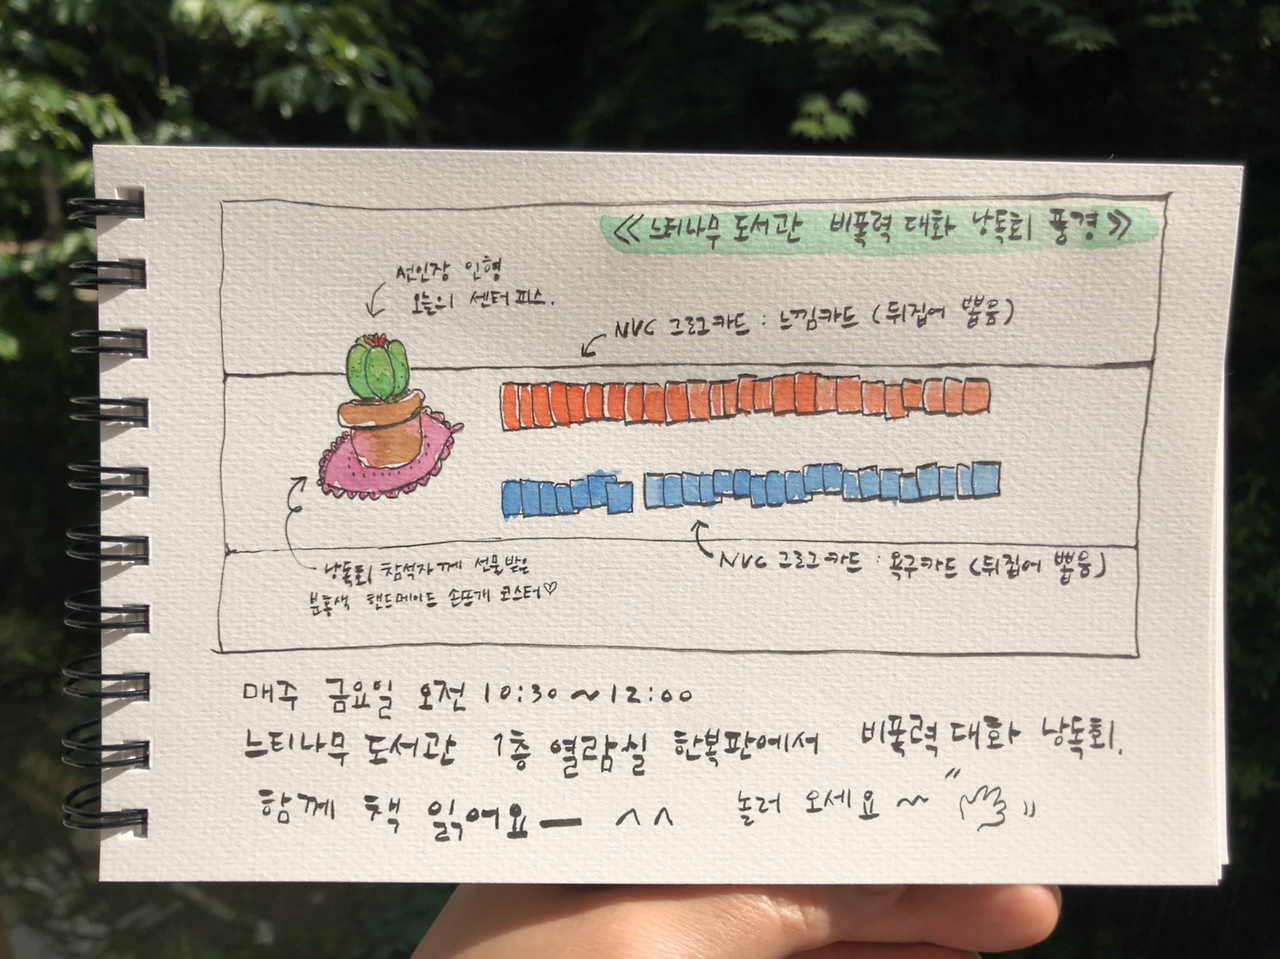 《느티나무 도서관 비폭력 대화 낭독회 풍경》
선인장 인형
오늘의 센터피스.
NVC 그로그카드 : 느낌카드 (뒤집어 뽑음)
NVC 그로그카드 : 욕구카드 (뒤집어 뽑음)
낭독회 참석자께 선물받은
분홍색 핸드메이드 손뜨개 코스터♡
매주 금요일 오전 10:30~12:00
느티나무 도서관 1층 열람실 한복판에서 비폭력 대화 낭독회.
함께 책 읽어요ー ^^ 놀러 오세요~